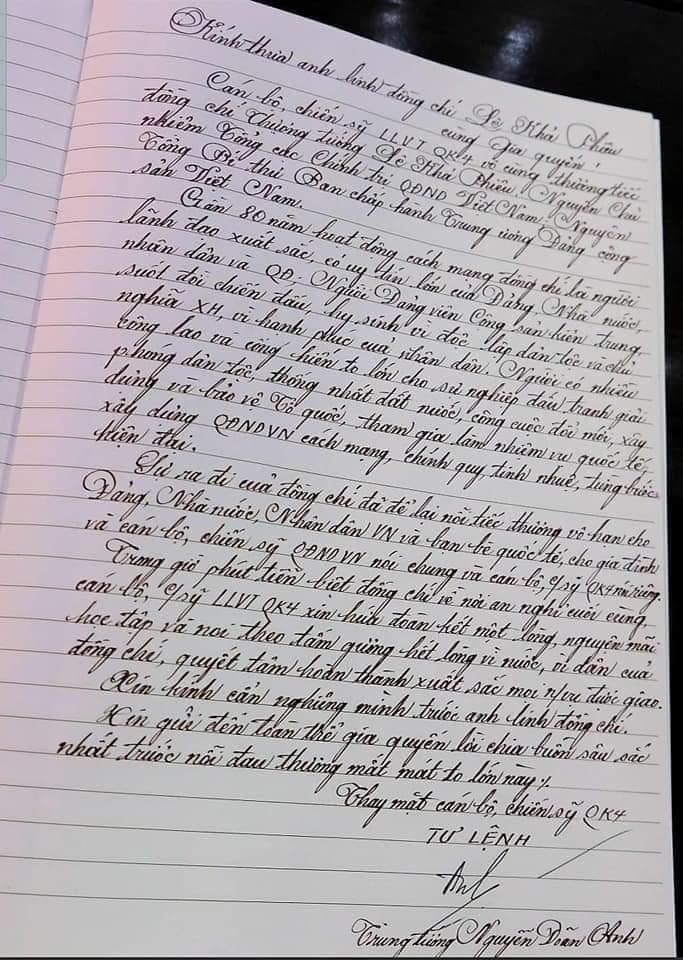 Kính thưa anh linh đồng chí Lê Khả Phiêu
cùng gia quyến!
Cán bộ, chiến sỹ LLVT QK4 vô cùng thương tiếc
đồng chí Thượng tướng Lê Khả Phiêu, Nguyên Chủ
nhiệm Tổng cục Chính trị QĐND Việt Nam, Nguyên
Tổng Bí thư Ban chấp hành Trung ương Đảng cộng
sản Việt Nam.
Gần 80 năm hoạt động cách mạng đồng chí là người
lãnh đạo xuất sắc, có uy tín lớn của Đảng, Nhà nước,
nhân dân và QĐ. Người Đảng viên Cộng sản kiên trung,
suốt đời chiến đấu, hy sinh vì độc lập dân tộc và chủ
nghĩa XH, vì hạnh phúc của nhân dân. Người có nhiều
công lao và cống hiến to lớn cho sự nghiệp đấu tranh giải
phóng dân tộc, thống nhất đất nước, công cuộc đổi mới, xây
dựng và bảo vệ Tổ quốc, tham gia làm nhiệm vụ quốc tế,
xây dựng QĐNDVN cách mạng, chính quy, tinh nhuệ, từng bước
hiện đại.
Sự ra đi của đồng chí đã để lại nỗi tiếc thương vô hạn cho
Đảng, Nhà nước, Nhân dân VN và bạn bè quốc tế, cho gia đình
và cán bộ, chiến sỹ QĐNDVN nói chung và cán bộ, c/sỹ QK4 nói riêng.
Trong giờ phút tiễn biệt đồng chí về nơi an nghỉ cuối cùng,
cán bộ, c/sỹ LLVT QK4 xin hứa đoàn kết một lòng, nguyện mãi
học tập và noi theo tấm gương hết lòng vì nước, vì dân của
đồng chí, quyết tâm hoàn thành xuất sắc mọi n/vụ được giao.
Xin kính cẩn nghiêng mình trước anh linh đồng chí.
Xin gửi đến toàn thể gia quyến lời chia buồn sâu sắc
nhất trước nỗi đau thương mất mát to lớn này./.
Thay mặt cán bộ, chiến sỹ QK4
TƯ LỆNH
Anh
Trung tướng Nguyễn Doãn Anh